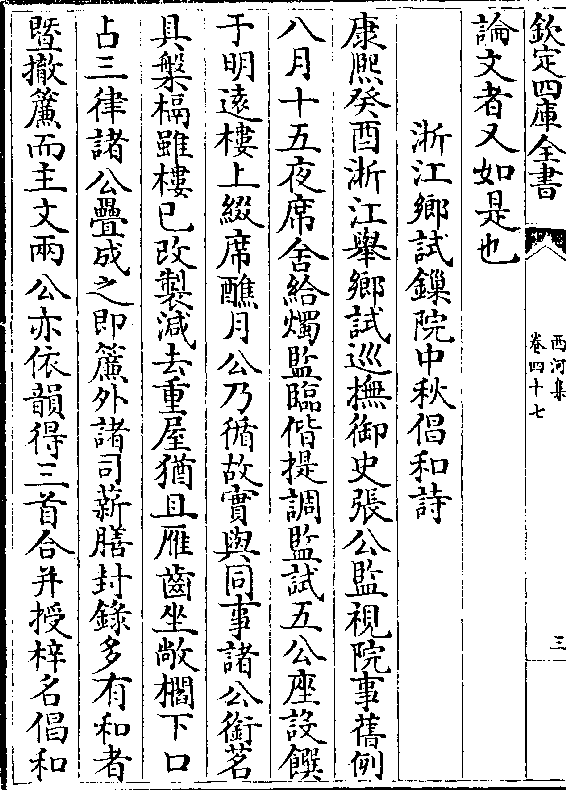 欽定四庫全書
西河集
卷四十七
三
論文者又如是也
浙江鄉試鏁院中秋倡和詩
康熙癸酉浙江舉鄉試巡撫御史張公監視院事舊例
八月十五夜席舍給燭監臨偕提調監試五公座設饌
于明遠樓上綴席醮月公乃循故實與同事諸公銜茗
具槃槅雖樓已改製減去重屋猶且雁齒坐敞櫩下口
占三律諸公疊成之即簾外諸司薪膳封錄多有和者
暨撤簾而主文兩公亦依韻得三首合并授梓名倡和